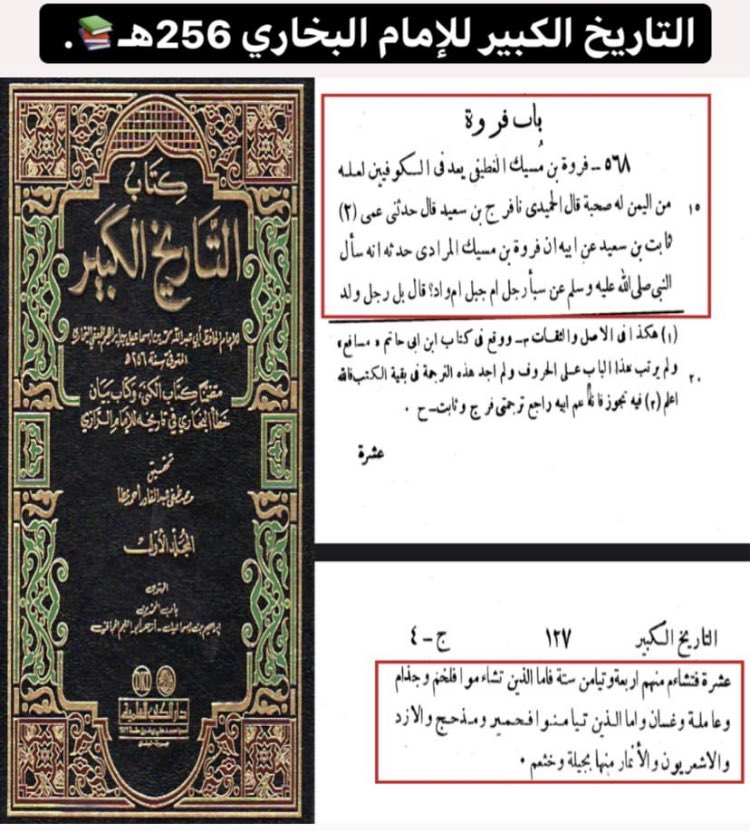 التاريخ الكبير للإمام البخاري 256هـ📚.
كتاب
التاريخ الكبير
متضمنًا كتاب الكنى، وكتاب بيان
خطأ البخاري في تاريخه للإمام الرازي
تحقيق
مصطفى عبد القادر أحمد عطا
المجلد الأول
المحتوى
دار الكتب العلمية
باب فروة
٥٦٨ – فروة بن مُسيك الغطيفي يعد فى الكوفيين لعله
من اليمن له صحبة قال الحميدى نا فرج بن سعيد قال حدثنى عمى (٢) ١٥
ثابت بن سعيد عن ابيه ان فروة بن مسيك المرادى حدثه انه سأل
النبى صلى الله عليه وسلم عن سبأ رجل ام جبل ام واد؟ قال بل رجل ولد
(١) هكذا فى الاصل والثقات – ووقع فى كتاب ابن ابى حاتم « مسافع»
ولم يرتب هذا الباب على الحروف ولم اجد هذه الترجمة فى بقية الكتب فالله ٢٠
اعلم (٢) فيه تجوز فانه عم ابيه راجع ترجمتى فرج وثابت–ح .
عشرة
التاريخ الكبير ١٢٧ ج – ٤
عشرة فتشاءم منهم اربعة وتيامن ستة فاما الذين تشاءموا فلخم وجذام
وعاملة وغسان واما الذين تيامنوا فحمير ومذحج والازد
والاشعريون والأنمار منها بجيلة وخثعم .